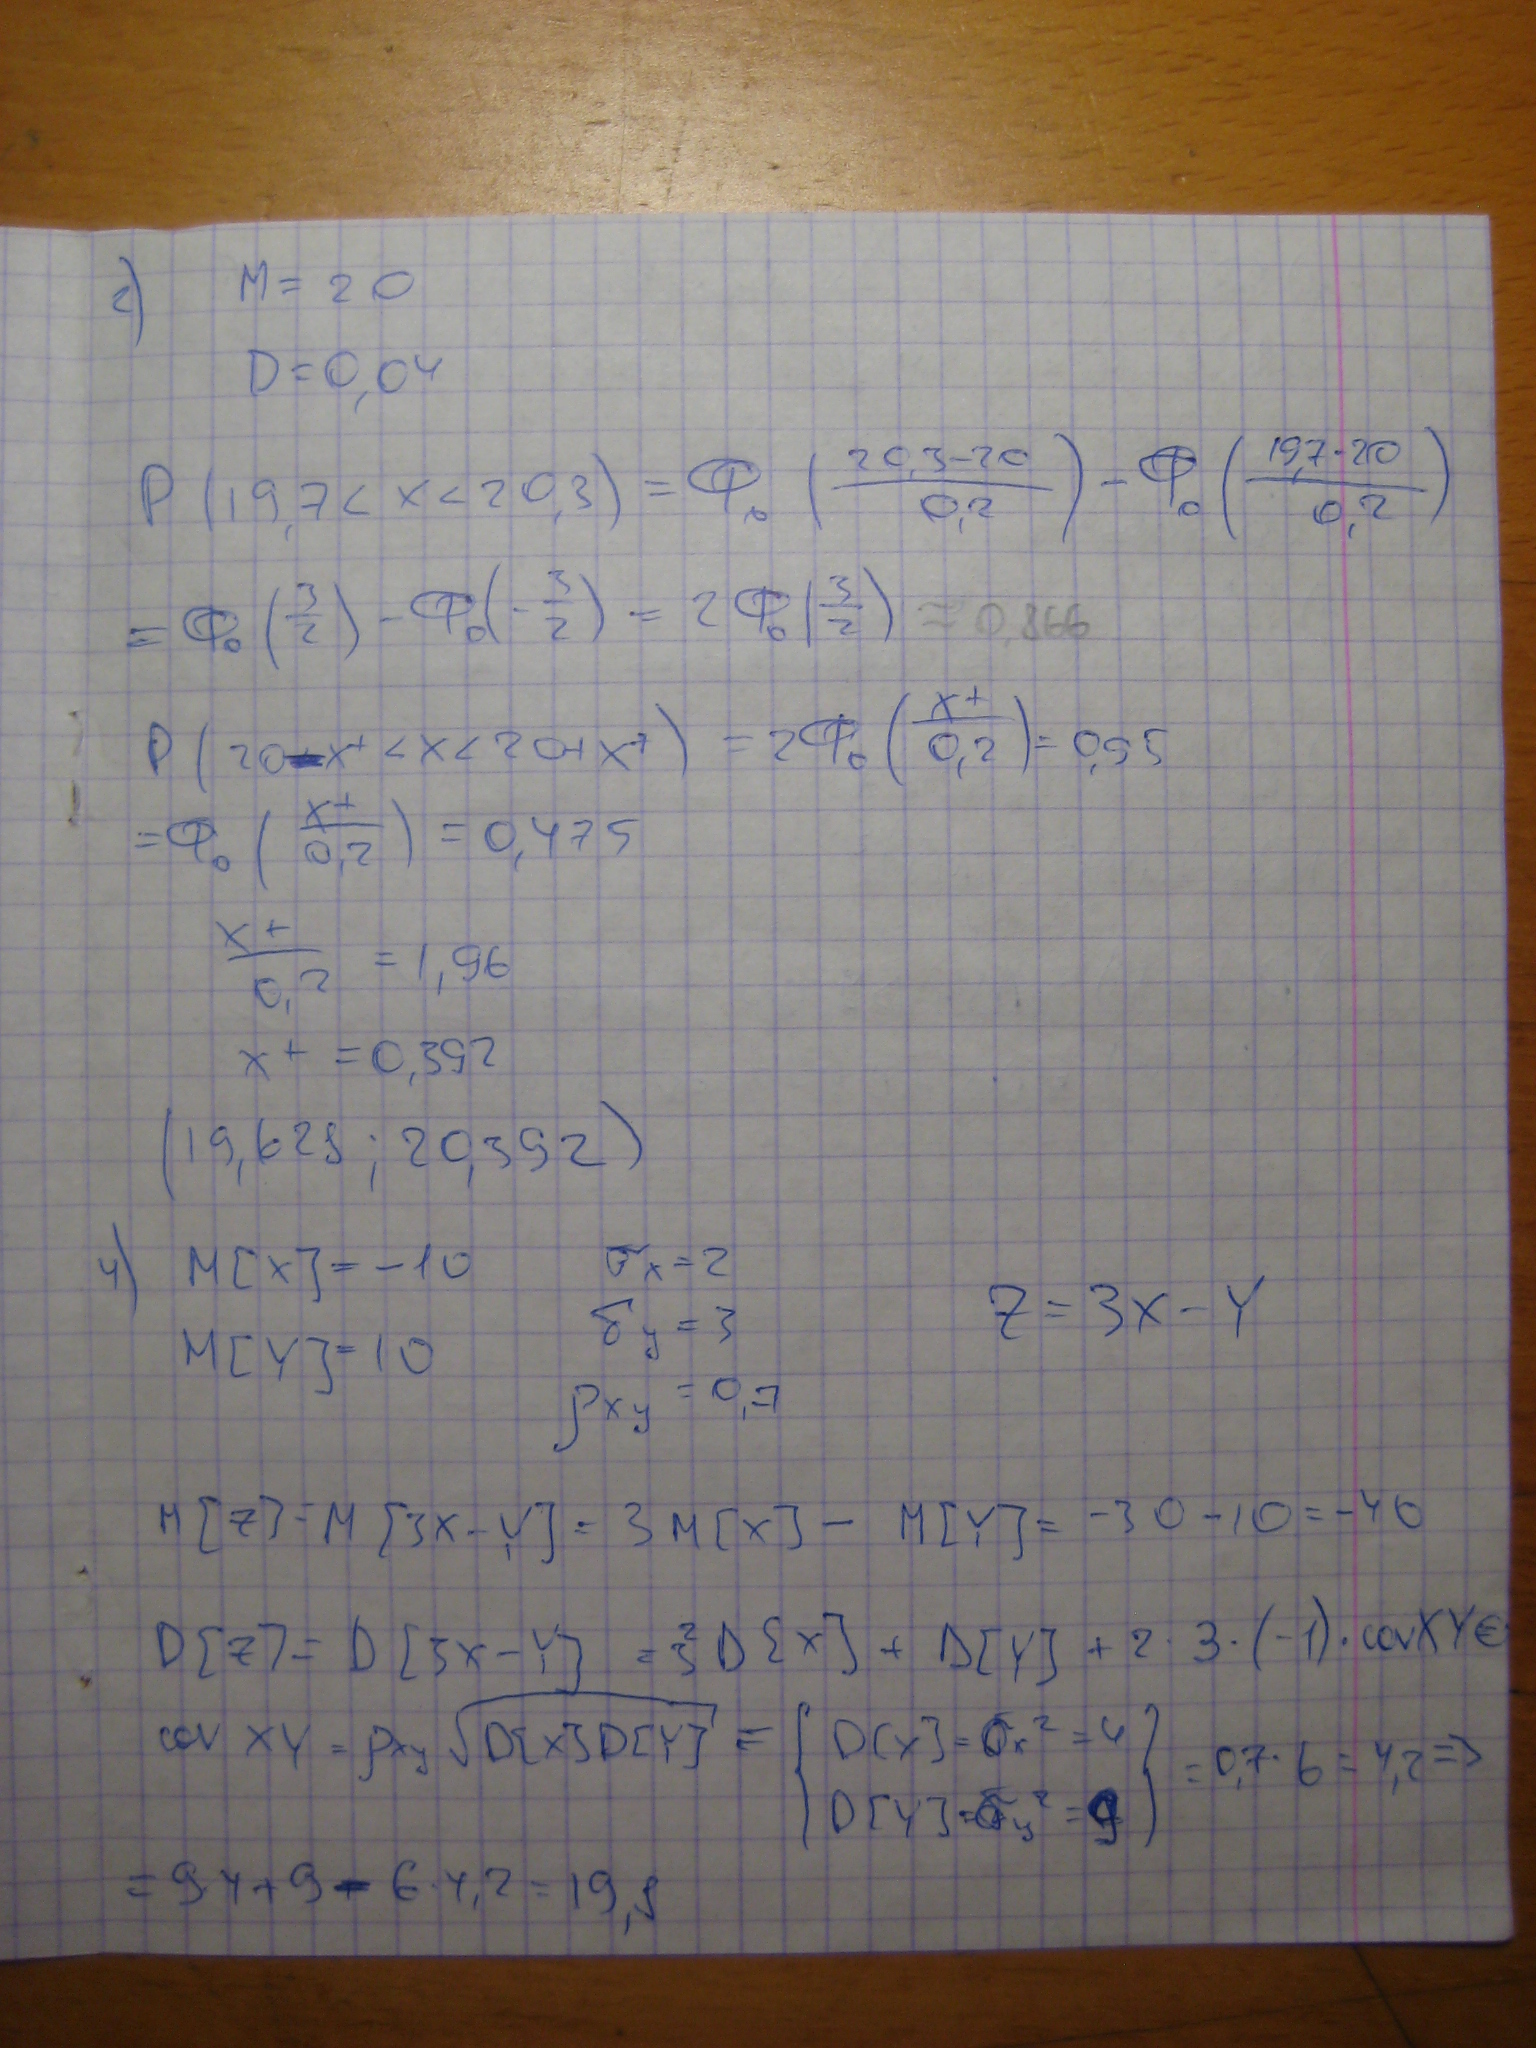 2) M = 20
D = 0,04
P ( 19,7 < x < 20,3 ) = Φ₀ ( (20,3-20)/0,2 ) - Φ₀ ( (19,7-20)/0,2 )
= Φ₀ ( 3/2 ) - Φ₀ ( - 3/2 ) = 2 Φ₀ ( 3/2 ) ≈ 0,866
P ( 20 - x⁺ < x < 20 + x⁺ ) = 2Φ₀ ( x⁺/0,2 ) = 0,95
= Φ₀ ( x⁺/0,2 ) = 0,475
x⁺/0,2 = 1,96
x⁺ = 0,392
( 19,628 ; 20,392 )
4) M[X] = -10 σx = 2 Z = 3X - Y
σy = 3
M[Y] = 10
ρxy = 0,7
M[Z] = M[3X - Y] = 3M[X] - M[Y] = -30 - 10 = -40
D[Z] = D[3X - Y] = 3² D[X] + D[Y] + 2 · 3 · (-1) · cov XY ⊜
cov XY = ρxy √(D[X]D[Y]) = { D[X] = σx² = 4 D[Y] = σy² = 9 } = 0,7 · 6 = 4,2 ⇒
= 9·4 + 9 - 6·4,2 = 19,8